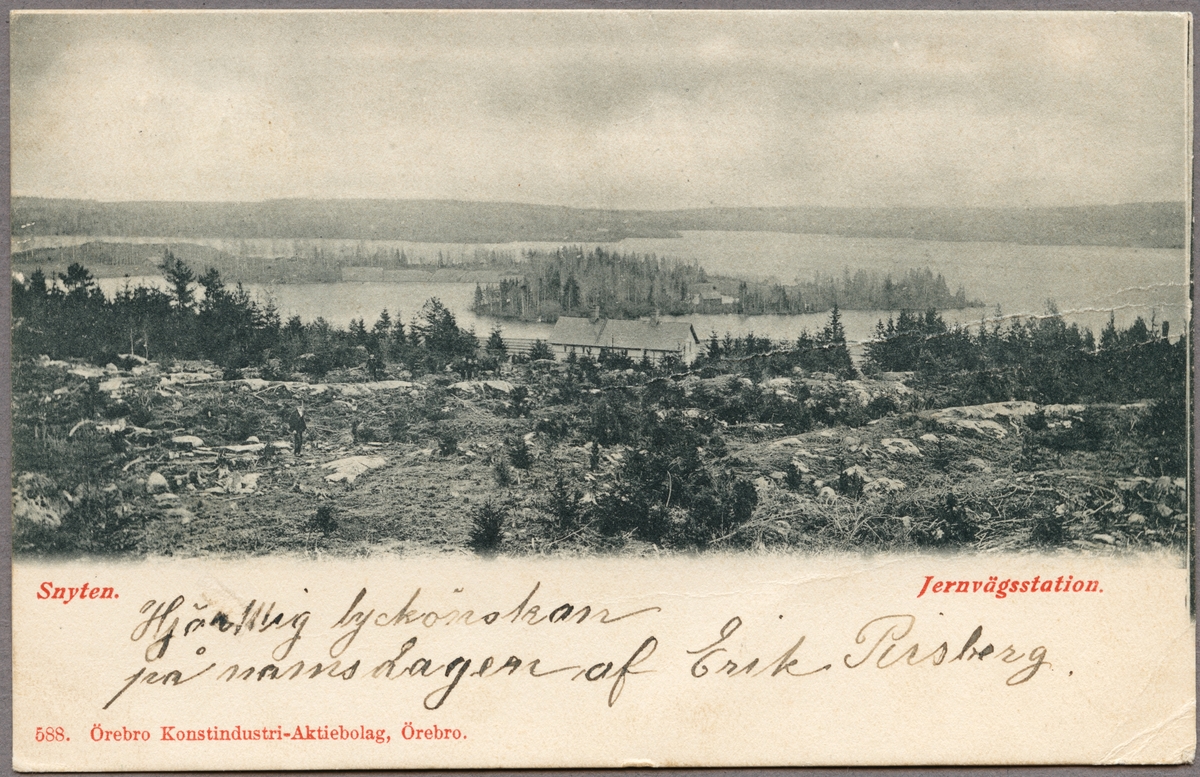 Snyten.
Jernvägsstation.
Hjärtlig lyckönskan
på namsdagen af Erik Persberg.
588. Örebro Konstindustri-Aktiebolag, Örebro.